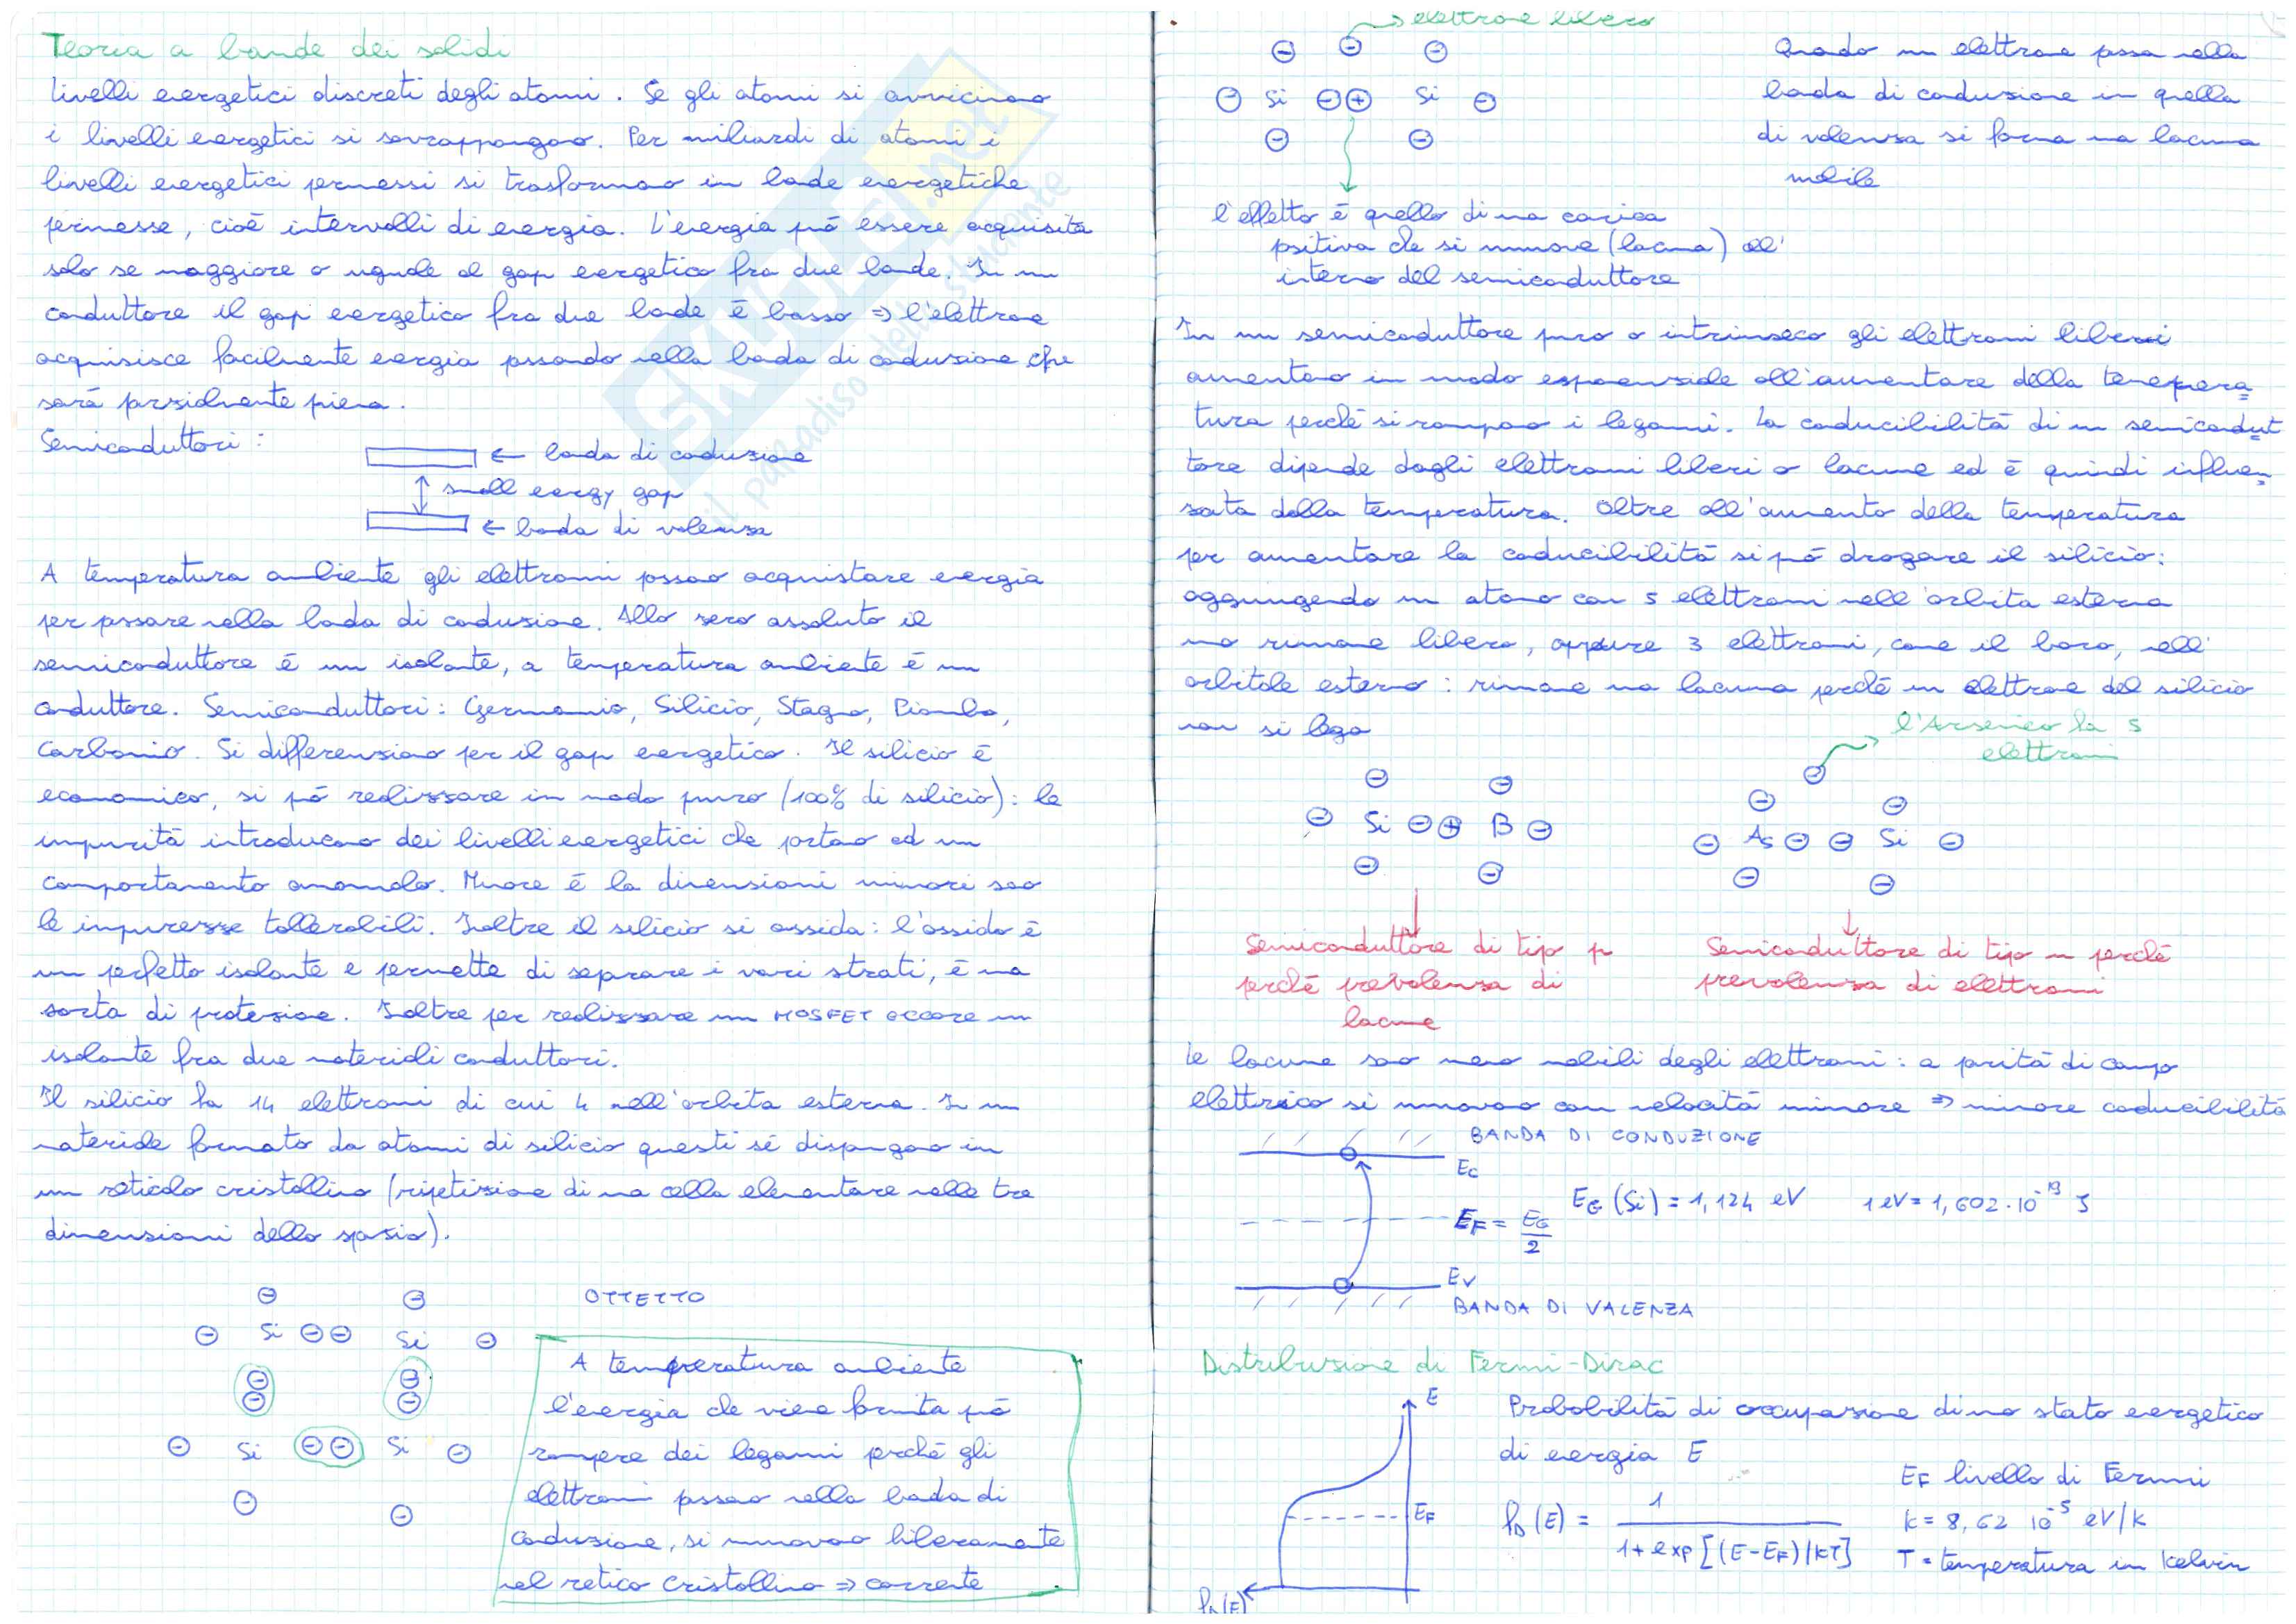 Teoria a bande dei solidi
Livelli energetici discreti degli atomi. Se gli atomi si avvicinano
i livelli energetici si sovrappongono. Per miliardi di atomi i
livelli energetici permessi si trasformano in bande energetiche
permesse, cioè intervalli di energia. L'energia può essere acquisita
solo se maggiore o uguale al gap energetico fra due bande. In un
conduttore il gap energetico fra due bande è basso ⇒ l'elettrone
acquisisce facilmente energia passando nella banda di conduzione che
sarà parzialmente piena.
Semiconduttori:
← banda di conduzione
small energy gap
← banda di valenza
A temperatura ambiente gli elettroni possono acquistare energia
per passare nella banda di conduzione. Allo zero assoluto il
semiconduttore è un isolante, a temperatura ambiente è un
conduttore. Semiconduttori: Germanio, Silicio, Stagno, Piombo,
Carbonio. Si differenziano per il gap energetico. Il silicio è
economico, si può realizzare in modo puro (100% di silicio): le
impurità introducono dei livelli energetici che portano ad un
comportamento anomalo. Minore è la dimensioni minori sono
le impurezze tollerabili. Inoltre il silicio si ossida: l'ossido è
un perfetto isolante e permette di separare i vari strati, è una
sorta di protezione. Inoltre per realizzare un MOSFET occore un
isolante fra due materiali conduttori.
Il silicio ha 14 elettroni di cui 4 nell'orbita esterna. In un
materiale formato da atomi di silicio questi si dispongono in
un reticolo cristallino (ripetizione di una cella elementare nelle tre
dimensioni dello spazio).
⊖ ⊖ OTTETTO
⊖ Si ⊖⊖ Si ⊖
⊖ ⊖
⊖ ⊖
⊖ Si ⊖⊖ Si ⊖
⊖ ⊖
A temperatura ambiente
l'energia che viene fornita può
rompere dei legami perché gli
elettroni passano nella banda di
conduzione, si muovono liberamente
nel retico cristallino ⇒ corrente
SKUOLA.net
il paradiso dello studente
elettrone libero
⊖ ⊖ ⊖
⊖ Si ⊖⊕ Si ⊖
⊖ ⊖
Quando un elettrone passa nella
banda di conduzione in quella
di valenza si forma una lacuna
mobile
l'effetto è quello di una carica
positiva che si muove (lacuna) all'
interno del semiconduttore
In un semiconduttore puro o intrinseco gli elettroni liberi
aumentano in modo esponenziale all'aumentare della tempera=
tura perché si rompono i legami. La conducibilità di un semicondut
tore dipende dagli elettroni liberi o lacune ed è quindi influen=
zata dalla temperatura. Oltre all'aumento della temperatura
per aumentare la conducibilità si può drogare il silicio:
aggiungendo un atomo con 5 elettroni nell'orbita esterna
uno rimane libero, oppure 3 elettroni, come il boro, nell'
orbitale esterno: rimane una lacuna perché un elettrone del silicio
non si lega
l'Arsenico ha 5
elettroni
⊖ ⊖
⊖ Si ⊖⊕ B ⊖
⊖ ⊖
⊖
⊖ ⊖
⊖ As ⊖ ⊖ Si ⊖
⊖ ⊖
Semiconduttore di tipo p
perché prevalenza di
lacune
Semiconduttore di tipo n perché
prevalenza di elettroni
Le lacune sono meno mobili degli elettroni: a parità di campo
elettrico si muovono con velocità minore ⇒ minore conducibilità
BANDA DI CONDUZIONE
Ec
EG (Si) = 1,124 eV 1 eV = 1,602·10⁻¹⁹ J
EF = EG/2
Ev
BANDA DI VALENZA
Distribuzione di Fermi-Dirac
E
EF
fD(E)
Probabilità di occupazione di uno stato energetico
di energia E
fD(E) = 1 / 1+exp[(E-EF)/kT]
EF livello di Fermi
k = 8,62 10⁻⁵ eV/k
T = temperatura in Kelvin